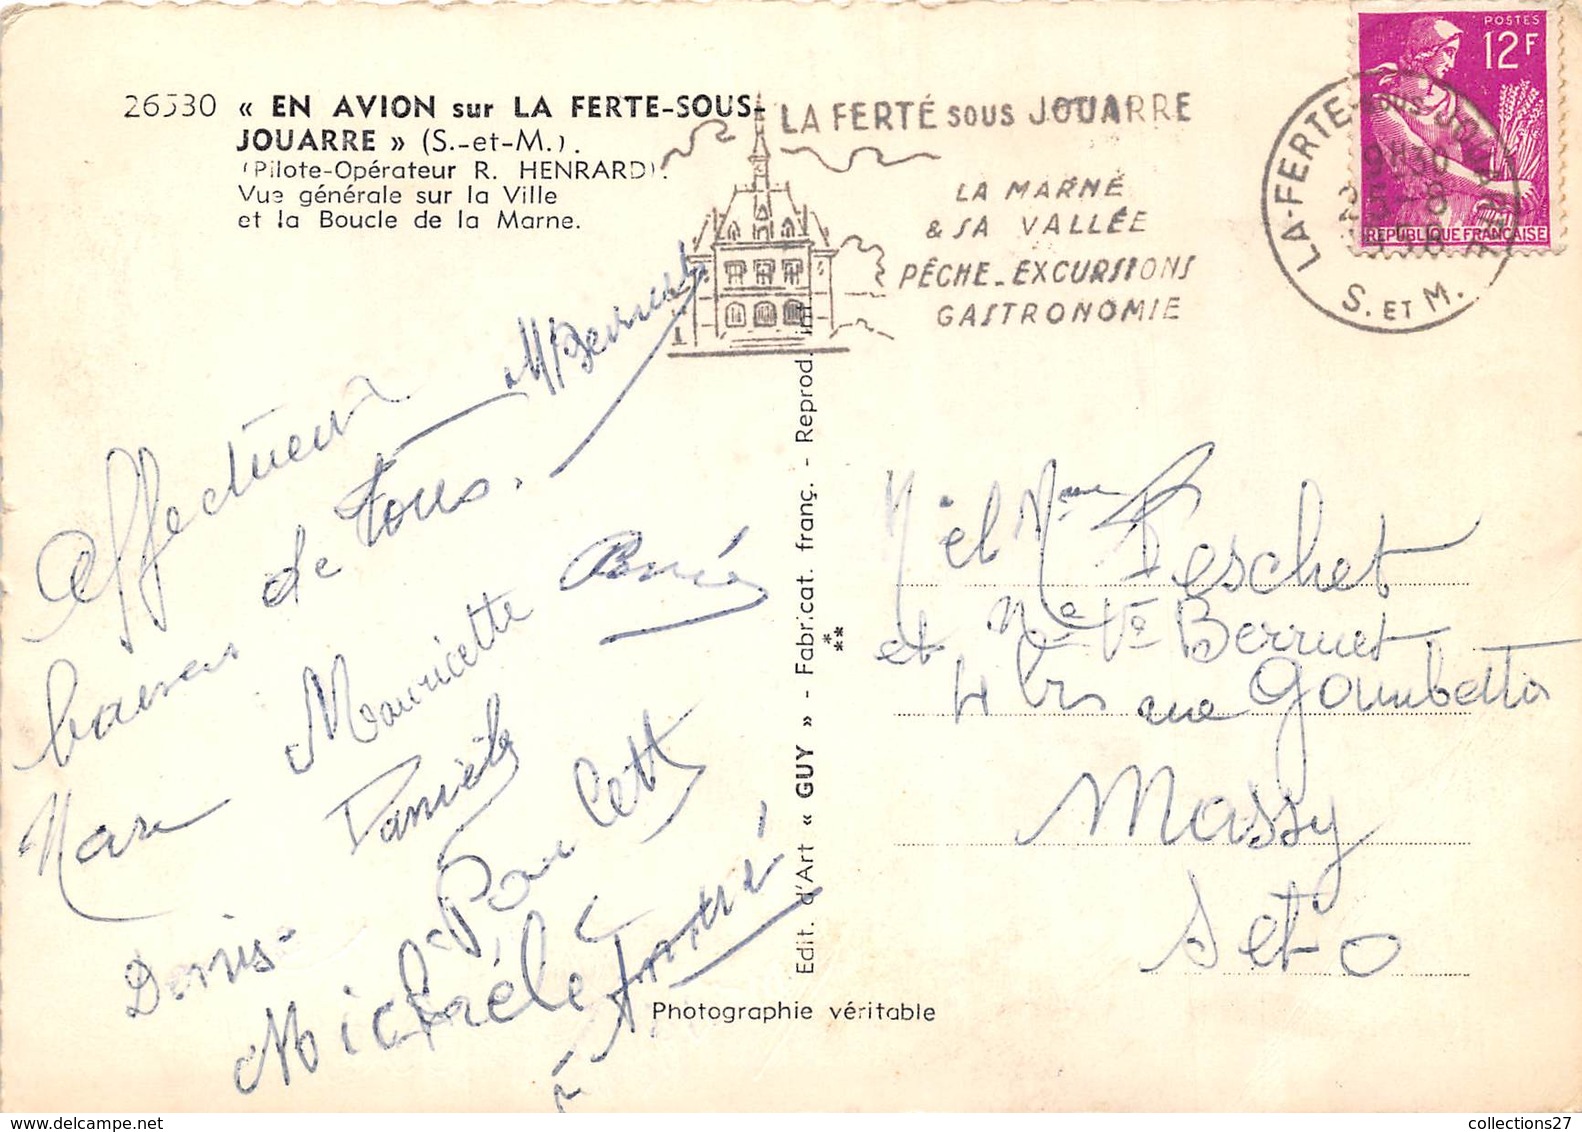 26530 « EN AVION sur LA FERTE-SOUS-
JOUARRE » (S.-et-M.).
(Pilote-Opérateur R. HENRARD).
Vue générale sur la Ville
et la Boucle de la Marne.
LA FERTÉ SOUS JOUARRE
LA MARNE
& SA VALLÉE
PÊCHE_EXCURSIONS
GASTRONOMIE
LA-FERTE-SOUS-JOUARRE
9H30
25-8
S. ET M.
POSTES
12F
REPUBLIQUE FRANÇAISE
Affectueux
baisers de tous.
Mauricette
Daniel
Denis
Paulette
Michèle
André
M et Mme Deschet
et Me Ve Berruet
4 bis rue Gambetta
Massy
S et O
Edit. d'Art « GUY » - Fabricat. franç. - Reprod. int.
Photographie véritable
collections27